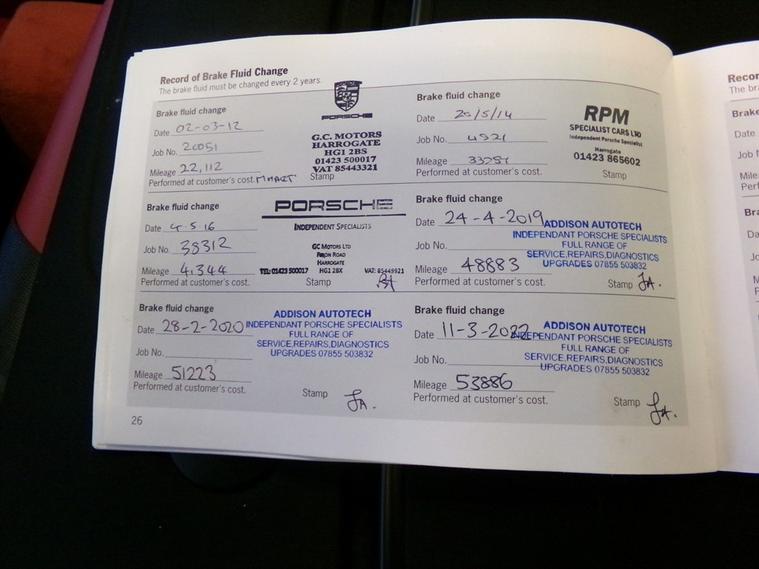 Record of Brake Fluid Change
The brake fluid must be changed every 2 years.
Brake fluid change
Date 02-03-12
Job No. 20051
Mileage 22,112
Performed at customer's cost.
Stamp
PORSCHE
G.C. MOTORS
HARROGATE
HG1 2BS
01423 500017
VAT 85443321
Brake fluid change
Date 20/5/14
Job No. 4521
Mileage
Performed at customer's cost.
Stamp
RPM
SPECIALIST CARS LTD
Independent Porsche Specialist
Harrogate
01423 865602
Brake fluid change
Date 4.5.16
Job No. 38312
Mileage 41,344
Performed at customer's cost.
Stamp
PORSCHE
INDEPENDENT SPECIALISTS
GC MOTORS LTD
ROAD
HARROGATE
TEL: 01423 500017 HG1 2BX VAT: 85449921
Brake fluid change
Date 24-4-2019
Job No.
Mileage 48883
Performed at customer's cost.
Stamp
ADDISON AUTOTECH
INDEPENDANT PORSCHE SPECIALISTS
FULL RANGE OF
SERVICE,REPAIRS,DIAGNOSTICS
UPGRADES 07855 503832
Brake fluid change
Date 28-2-2020
Job No.
Mileage 51223
Performed at customer's cost.
Stamp
ADDISON AUTOTECH
INDEPENDANT PORSCHE SPECIALISTS
FULL RANGE OF
SERVICE,REPAIRS,DIAGNOSTICS
UPGRADES 07855 503832
Brake fluid change
Date 11-3-2022
Job No.
Mileage 53886
Performed at customer's cost.
Stamp
ADDISON AUTOTECH
INDEPENDANT PORSCHE SPECIALISTS
FULL RANGE OF
SERVICE,REPAIRS,DIAGNOSTICS
UPGRADES 07855 503832
26
Recor
The bra
Brake
Date
Job N
Mile
Perf
Bra
Da